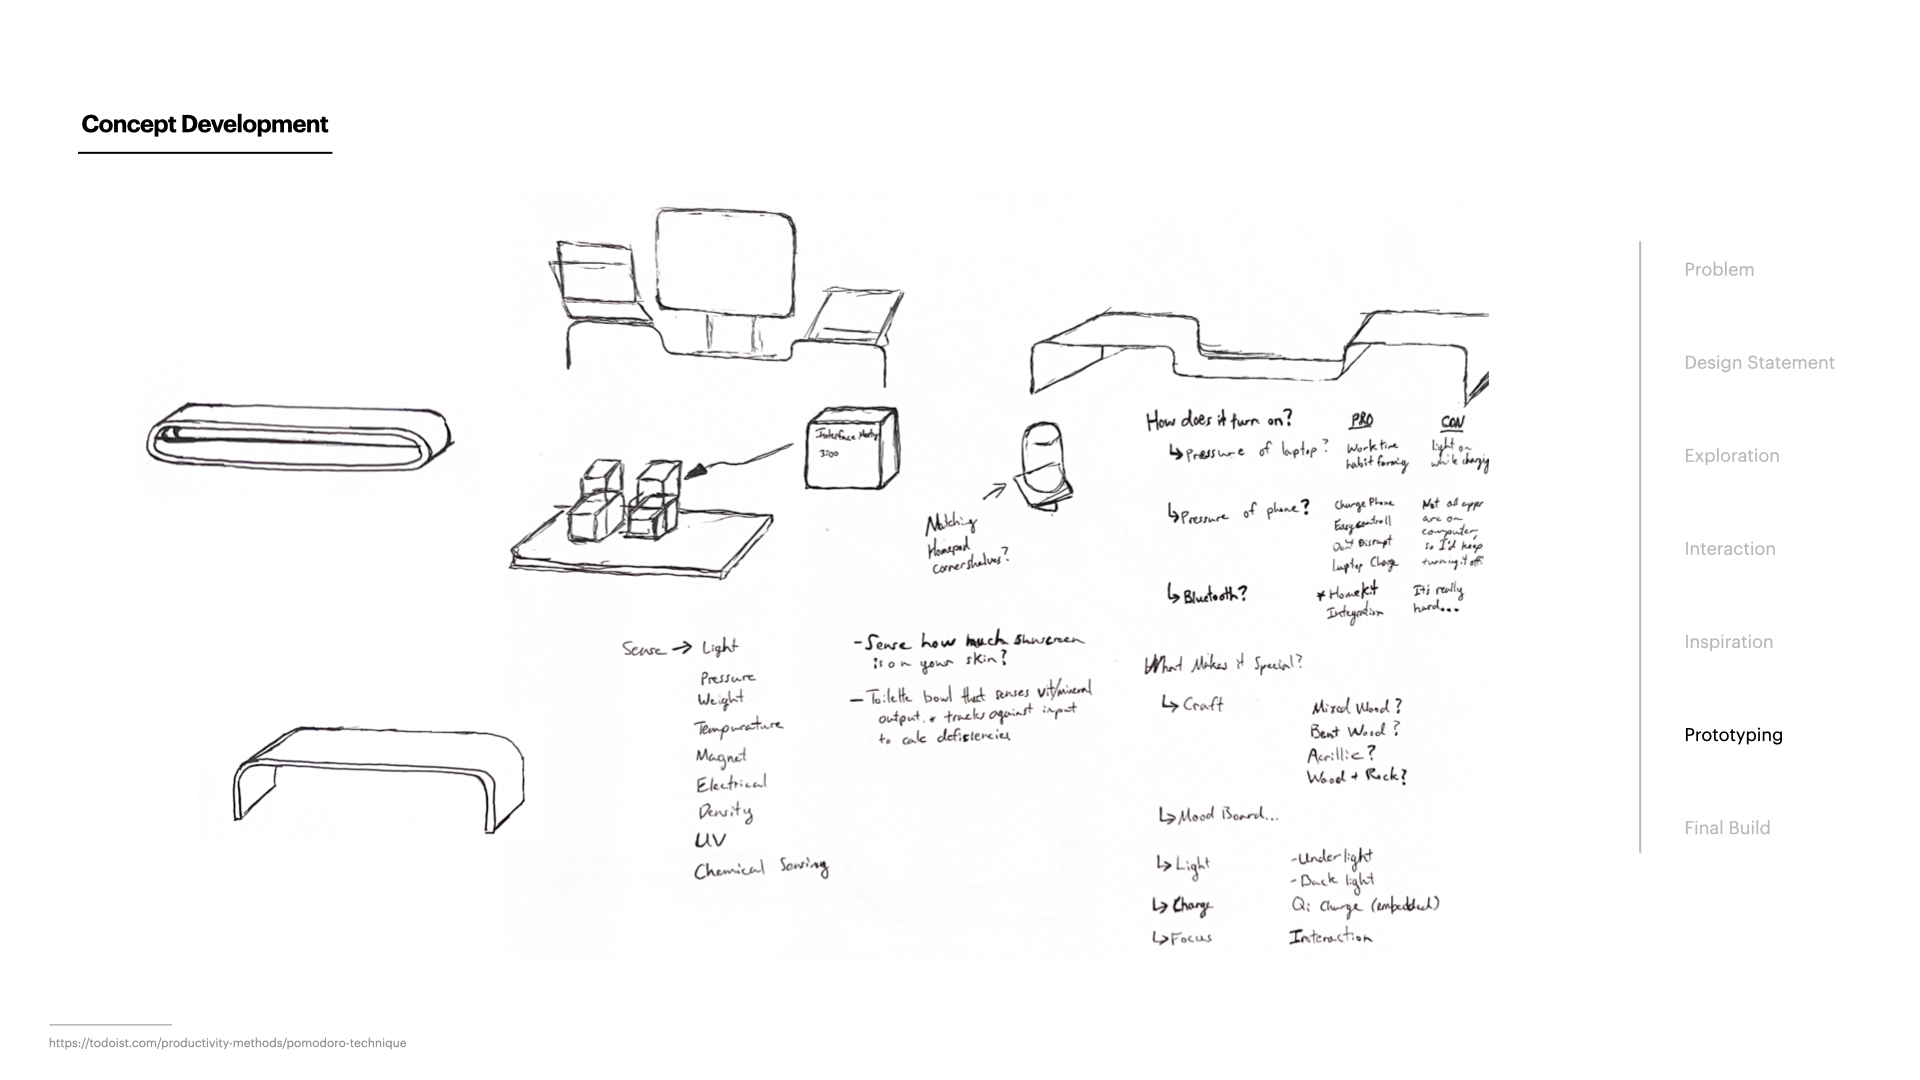 Concept Development
Interface Meeting
3:00
Matching
Homepod
corner shelves?
How does it turn on?
PRO
CON
↳ Pressure of laptop?
Work time
habit forming
light on
while charging
↳ Pressure of phone?
Charge Phone
Easy controll
Don't Disrupt
Laptop Charge
Not all apps
are on
computer,
so I'd keep
turning it off.
↳ Bluetooth?
* Homekit
Integration
It's really
hard...
Sense → Light
Pressure
Weight
Tempurature
Magnet
Electrical
Density
UV
Chemical Sensing
- Sense how much sunscreen
is on your skin?
- Toilette bowl that senses vit/mineral
output, + tracks against input
to calc deficiencies
What Makes it Special?
↳ Craft
Mixed Wood?
Bent Wood?
Acrillic?
Wood + Rock?
↳ Mood Board...
↳ Light
- Under light
- Back light
↳ Charge
Qi Charge (embedded)
↳ Focus
Interaction
Problem
Design Statement
Exploration
Interaction
Inspiration
Prototyping
Final Build
https://todoist.com/productivity-methods/pomodoro-technique